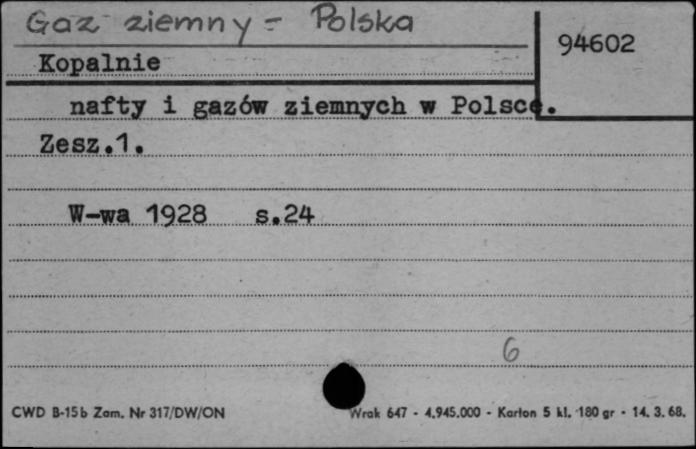 Gaz ziemny - Polska
94602
Kopalnie
nafty i gazów ziemnych w Polsce.
Zesz.1.
W-wa 1928 s.24
6
CWD B-15b Zam. Nr 317/DW/ON Wrak 647 - 4.945.000 - Karton 5 kl. 180 gr - 14. 3. 68.